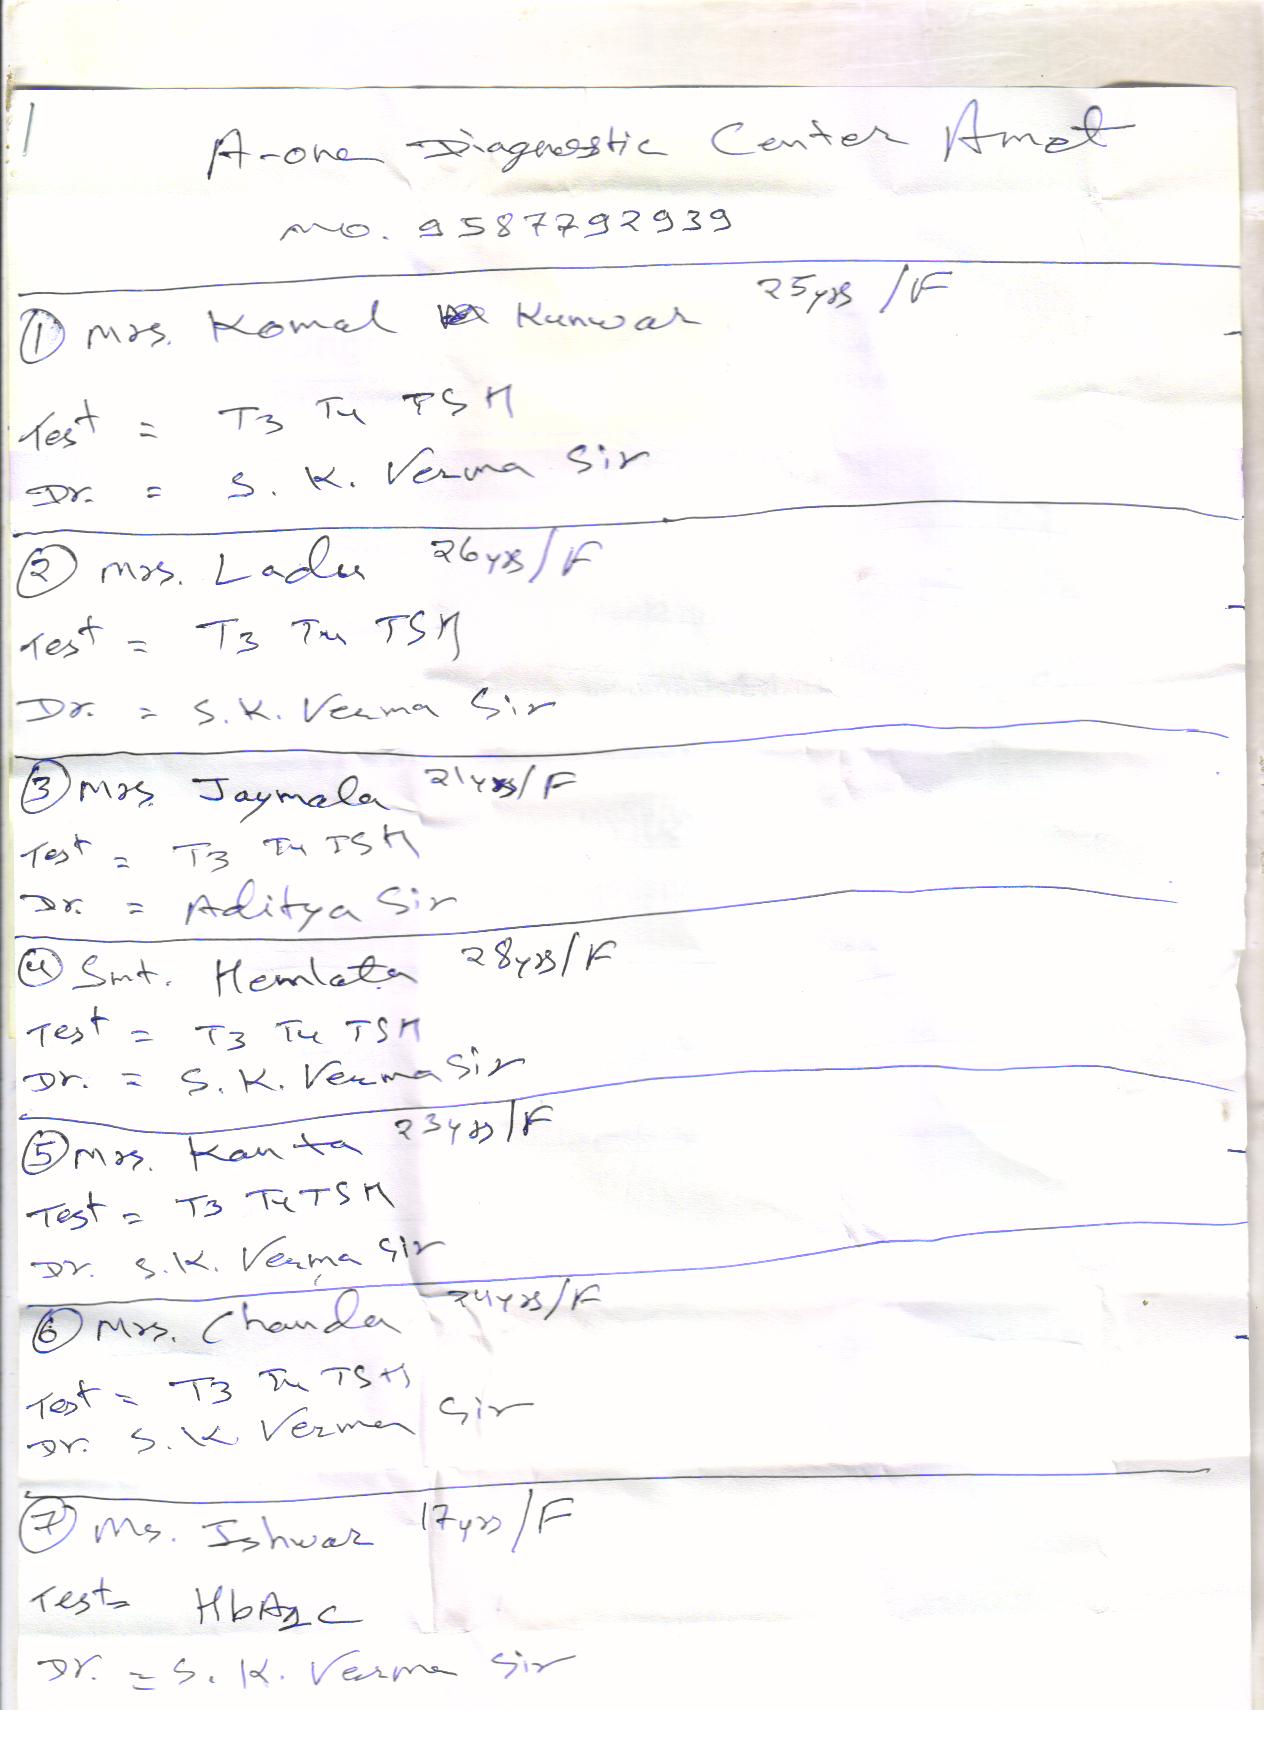 1
A-one Diagnostic Center Amet
MO. 9587792939
① Mrs. Komal Kunwar 25yrs /F
Test = T3 T4 TSH
Dr. = S. K. Verma Sir
② Mrs. Ladu 26yrs/F
Test = T3 T4 TSH
Dr. = S.K. Verma Sir
③ Mrs. Jaymala 21yrs/F
Test = T3 T4 TSH
Dr. = Aditya Sir
④ Smt. Hemlata 28yrs/F
Test = T3 T4 TSH
Dr. = S.K. Verma Sir
⑤ Mrs. Kanta 23yrs/F
Test = T3 T4 TSH
Dr. S.K. Verma Sir
⑥ Mrs. Chanda 24yrs/F
Test = T3 T4 TSH
Dr. S.K. Verma Sir
⑦ Ms. Ishwar 17yrs/F
Test = HbA1C
Dr. = S. K. Verma Sir